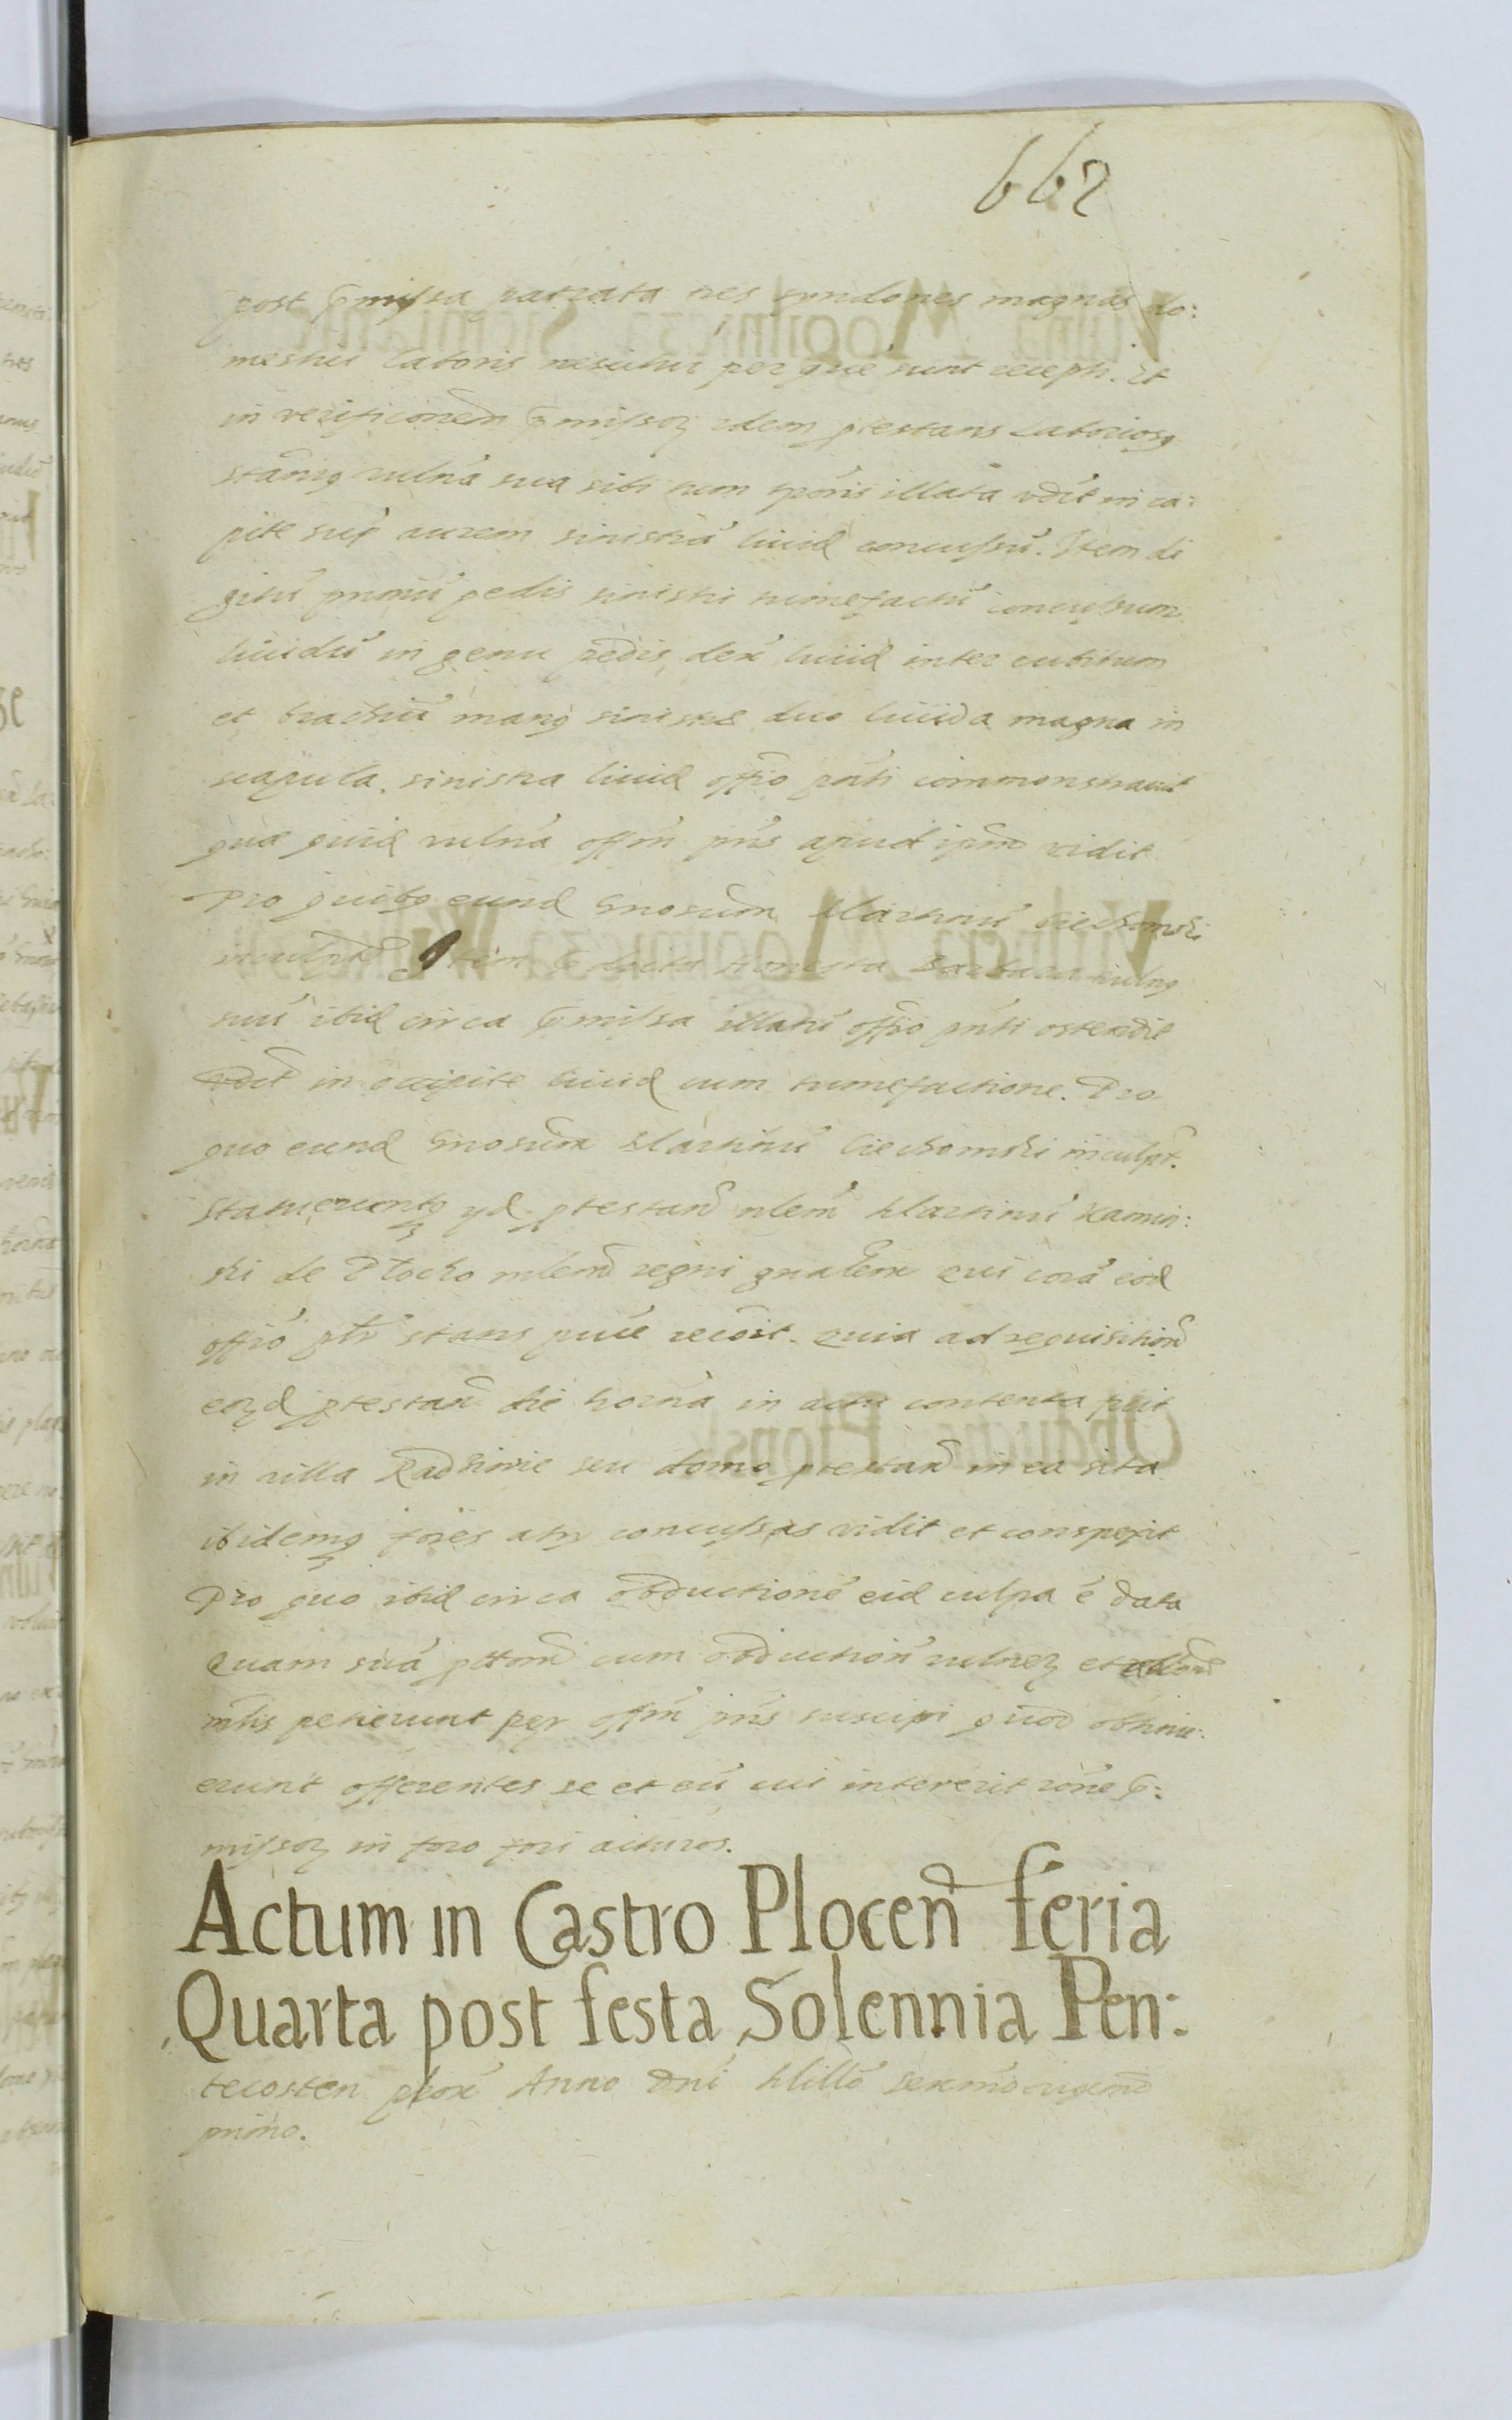 662
post p̃missa patrata tres syndones magnas do:
mestici laboris nescitur per que sunt recepti. Et
in verificionem p̃missoꝝ idem ptestans Laboriosꝰ
vulnã sua sibi tum illata vdēt in ca:
pite sup aurem sinistrã livid concussũ. Item di
gitũ primũ pedis sinistri tumefactũ concussum
lividũ in genu pedis dex̃ livid inter cubitum
et brachiũ manꝰ sinistræ duo livida magna in
scapula sinistra livid offio pñti commonstravit
quæ quid vulnã offm pñs apud ipm vidit
Pro quibꝰ eund Gnosum Martinũ Ciechomski
inculpat Item honesta Barbara vulnꝰ
suũ ibid circa p̃missa illatũ offio pñti ostendit
vdēt in occipite livid cum tumefactione. Pro
quo eund Gnosum Martinũ Ciechomski inculpt.
Statueruntqꝫ yd ptestan̄ Martinũ Kamin:
ski de Plocko regni gnalem qui corã eod
offio ptr̃ stans puce recoit. quia ad requisition̄
eoꝝd ptestan̄ die horna in actu contenta fuit
in villa seu domo ptestan̄ in ea sita
ibidemqꝫ fores concussas vidit et conspexit
Pro quo ibid circa obductionẽ eid culpa ẽ data
Quam suã ptt̃om cum obduction̄ vulneꝝ et
petierunt per offm pñs suscipi quod obtinu:
erunt offerentes se et eũ cui intererit rõne p̃:
missoꝝ in foro fori acturos.
Actum in Castro Plocen̄ feria
Quarta post festa Solennia Pen:
tecosten prox̃ Anno Dñi Millo sexmo vigemo
primo.